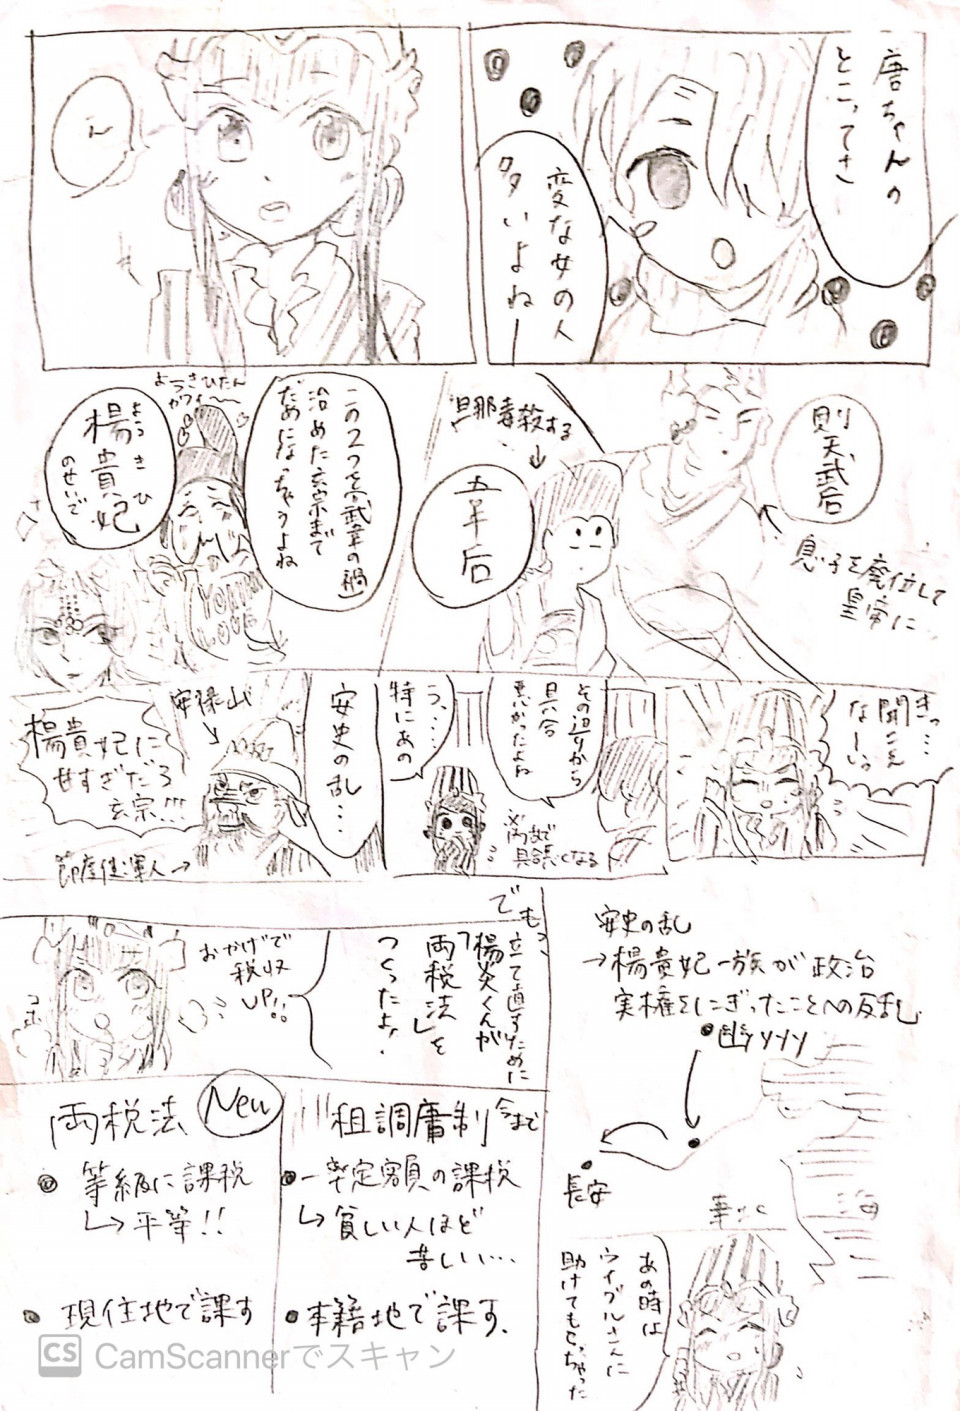 唐ちゃんの
とこってさ
変な女の人
多いよねー
え
則天武后
息子を廃位して
皇帝に
旦那毒殺する
韋后
この2つを「武韋の禍」
治めた玄宗まで
だめになっちゃうよね
ようきひたん
カワイ〜〜
楊貴妃
ようきひ
のせいで
I
YOUKIHI
LOVE
きっ…
聞こえ
なーいっ
その辺りから
具合
悪かったよね
※内政で
具合悪くなる
う、……
特にあの
安史の乱…
安禄山
楊貴妃に
せすぎだろ
玄宗!!!
節度使:軍人→
安史の乱
→楊貴妃一族が政治
実権をにぎったことへの反乱
幽州
長安
華北
海
あの時は
ウイグルさんに
助けてもらっちゃった
でもっ、
立て直すために
楊炎くんが
「両税法」を
つくったよ!
おかげで
税収
UP!!
今まで
租調庸制
一律定額の課税
↳貧しい人ほど
苦しい…
本籍地で課す.
New
両税法
等級に課税
↳平等!!
現住地で課す
CS CamScannerでスキャン